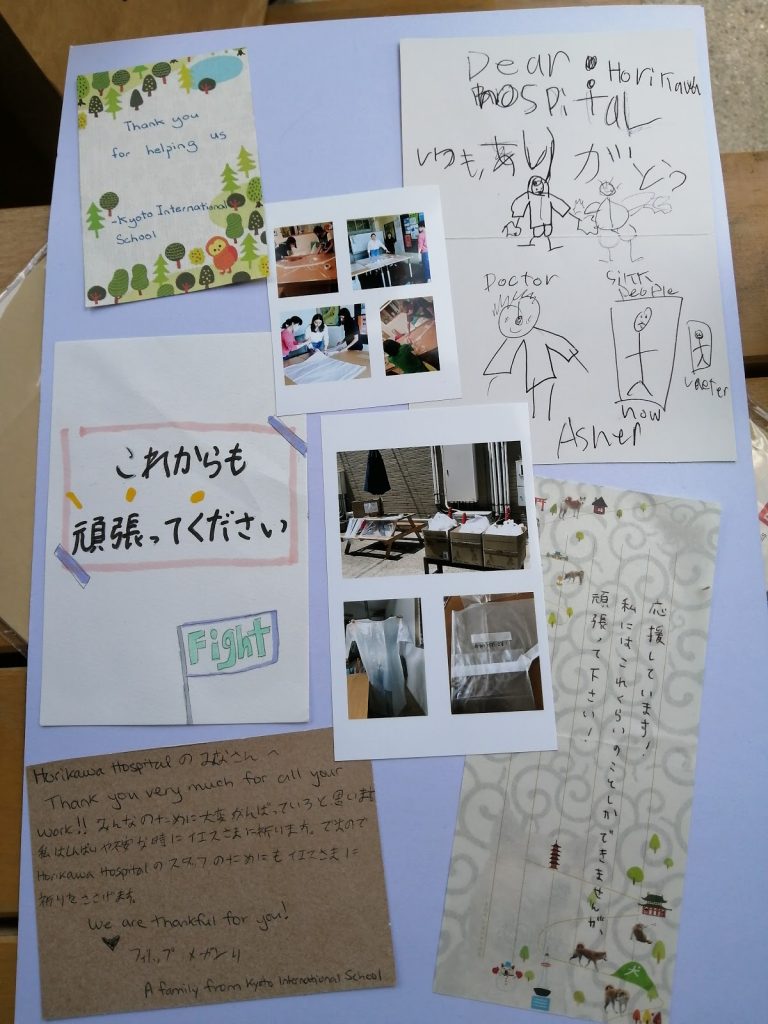 Thank you
for helping us
-Kyoto International
School
Dear Horikawa
hospital
いつも,ありがとう
Doctor
Sikk
People
now
Laeter
Asher
これからも
頑張ってください
Fight
応援しています!
私にはこれくらいのことしかできませんが、
頑張って下さい!
犬
Horikawa Hospitalのみなさんへ
Thank you very much for all your
work!! みんなのために大変がんばっていると思います
私はしんぱいや不安な時にイエスさまに祈ります。ですので
Horikawa Hospitalのスタッフのためにもイエスさまに
祈りをささげます。
We are thankful for you!
フィリップ メーガン より
A family from Kyoto International School